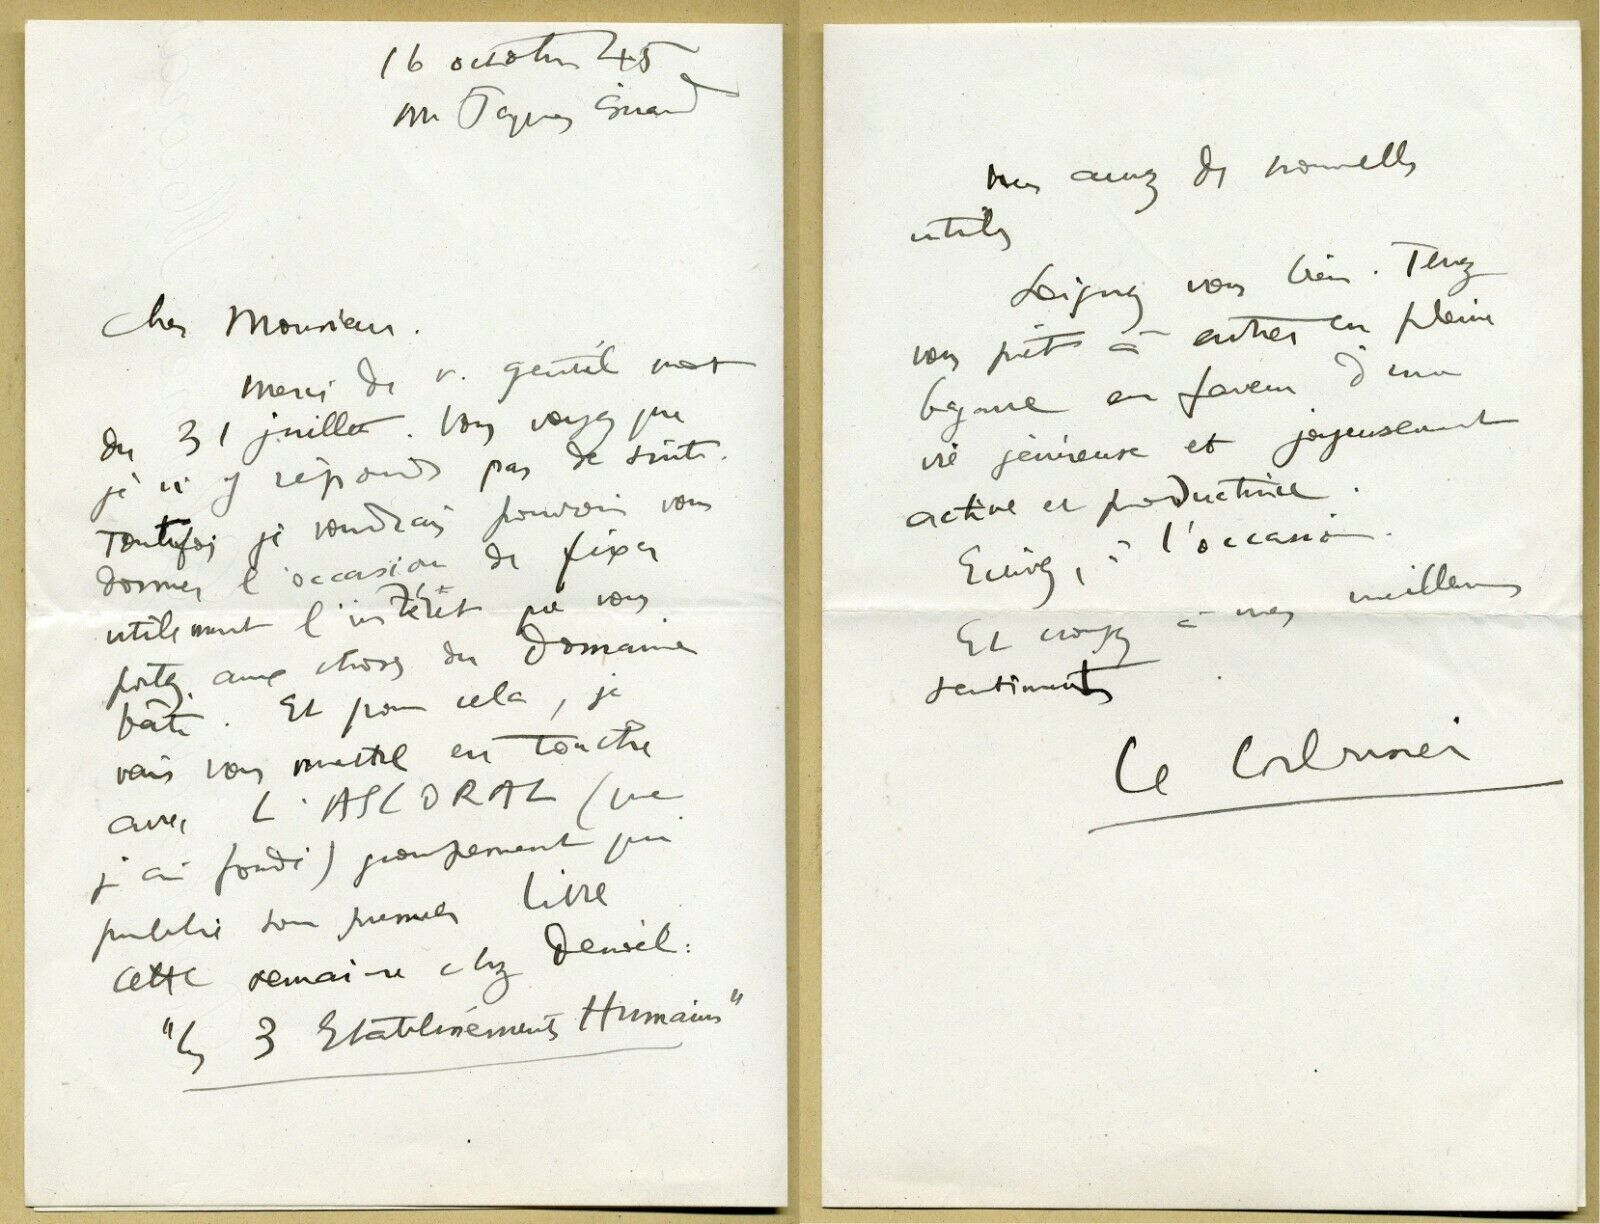 16 octobre 45
Mr Jacques Girard
Cher Monsieur.
Merci de v. gentil mot
du 31 juillet. Vous voyez que
je n'y réponds pas de suite.
Toutefois je voudrais pouvoir vous
donner l'occasion de fixer
utilement l'intérêt que vous
portez aux choses du Domaine
bâti. Et pour cela, je
vais vous mettre en touche
avec L'ASCORAL (que
j'ai fondé) groupement qui
publie son premier livre
cette semaine chez Denoël:
"Les 3 Etablissements Humains"
Vous aurez de nouvelles
utiles
Soignez vous bien. Tenez
vous prêt à entrer en pleine
bagarre en faveur d'une
vie généreuse et joyeusement
active et productrice.
Ecrivez, à l'occasion.
Et croyez à mes meilleurs
sentiments
Le Corbusier